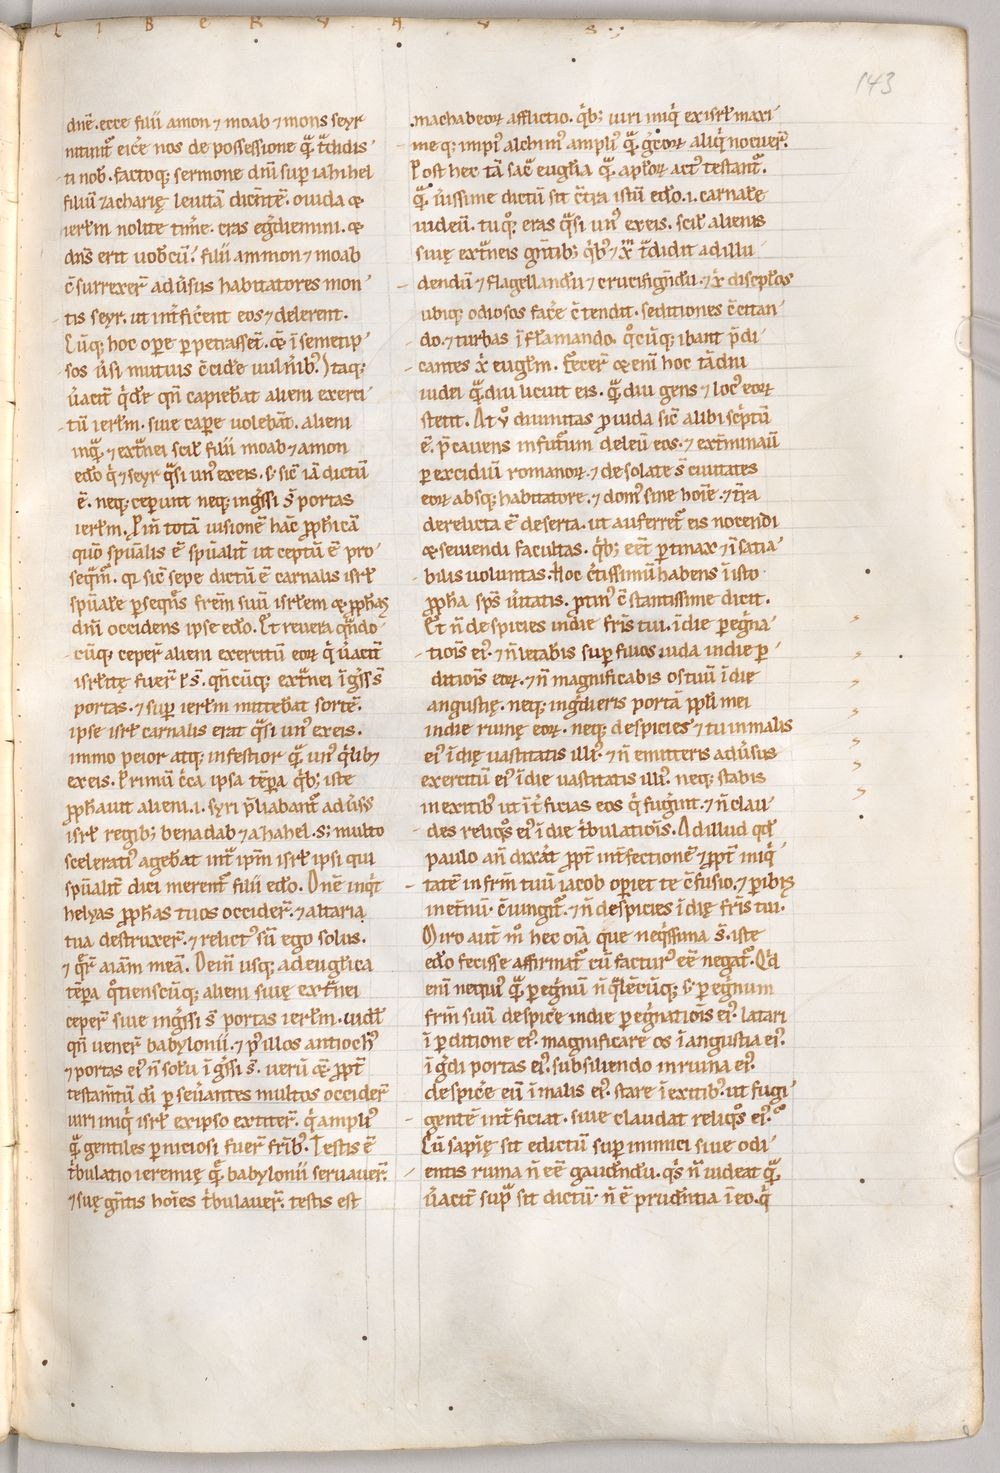 L I B E R V A V S.;
143
dnē. ecce filii amon ⁊ moab ⁊ mons seyr
nitunt᷑ eic̄e nos de possessione qͣ̄ t͛didis
ti nob̄. factoq; sermone dn̄i suꝑ iahihel
filiū zacharię leuitā dicēntē. o iuda ⁊
ierl̄m nolite tim̄e. cras eg͛diemini. ⁊
dn̄s erit uob̄cū. filii ammon ⁊ moab
c̄surrexer̄ adūsus habitatores mon
tis seyr. ut int͛fic̄ent eos ⁊ delerent.
Cūq; hoc oꝑe ꝑpetrassēt. ⁊ ī semetip
sos ūsi mutuis c̄cid̄e uuln̄ib;. Itaq;
ūacit͛ q̇d̄r qn̄ capieb̄at alieni exerci
tū ierl̄m. siue caꝑe uolebāt. alieni
inqͣ̄ ⁊ ext͛nei scil̄ filii moab ⁊ amon
edō q̇ ⁊ seyr qͣ̄si un᷒ ex eis. s; sic̄ iā dictū
ē. neq; ceperunt neq; ing͛ssi s̄ portas
ierl̄m. P̄in̄ totā uisionē hāc ꝓph̄icā
quō spūalis ē spūalit͛ ut ceptū ē pro
seqm̄. qꝛ sic̄ sepe dictū ē carnalis isrl̄
spūale ꝑseqn̄s frēm suū isrl̄em ⁊ ꝓph̄as
dn̄i occidens ipse edō. Et reuera qn̄do
cūq; ceper̄ alieni exercitū eoꝝ q̇ ūacit͛
isrl̄itę fuer̄ ł s̄. qn̄cūq; ext͛nei īg͛ssi s̄
portas. ⁊ suꝑ ierl̄m mitteb̄at sortē.
ipse isrl̄ carnalis erat qͣ̄si un᷒ ex eis.
immo peior atq; infestior qͣ̄ un᷒ q̇lib;
ex eis. Primū c̄ca ipsa tēꝑa qb; iste
ꝓph̄auit alieni .i. syri p̄liabant᷑ adūs᷒
isrl̄ regib; benadab ⁊ ahahel. s; multo
scelerati᷒ ageb̄at int͛ ipm̄ isrl̄ ipsi qui
spūalit͛ dici merent᷑ filii edō. Dn̄e inqͥt
helyas ꝓph̄as tuos occider̄. ⁊ altaria
tua destruxer̄. ⁊ relict᷒ sū ego solus.
⁊ qr̄r̄ aīam meā. Dein̄ usq; ad eug̅lica
tēꝑa qͦtienscūq; alieni siue ext͛nei
ceper̄ siue ing͛ssi s̄ portas ierl̄m. uid̄l
qn̄ uener̄ babylonii. ⁊ p᷒ illos antioch᷒
⁊ portas ei᷒ n̄ solū īg͛ssi s̄. uerū ⁊ ꝓpt͛
testam̄tū di̅ ꝑseūantes multos occider̄
uiri iniq̇ isrl̄ ex ipso extiter̄. q̇ ampli᷒
qͣ̄ gentiles ꝑniciosi fuer̄ fr̄ib᷒. Testis ē
t͛bulatio ieremię qͣ̄ babylonii seruauer̄.
⁊ suę gn̄tis hoīes t͛bulauer̄. testis est
machabeoꝝ afflictio. qb; uiri iniq̇ ex isrl̄ maxi
meq; impi᷒ alchim᷒ ampli᷒ qͣ̄ g͛coꝝ aliq̇ nocuer̄.
Post hec tā sac͛ eug̅lia qͣ̄ apl̄oꝝ act᷒ testant᷑.
qͣ̄ ūissime dictū sit c̄tra istū edō .i. carnale
iudeū. tu q; eras qͣ̄si un᷒ ex eis. scil̄ alienis
suię ext͛neis gn̄tib; qb; ⁊ xp̄m t͛didit ad illu
dendū ⁊ flagellandū ⁊ crucifigendū. ⁊ xp̄i discipl̄os
ubiq; odiosos fac̄e c̄tendit. seditiones c̄citan
do. ⁊ turbas īflāmando. qͦcūq; ibant p̄di
cantes xp̄i eug̅lm. Fecer̄ ⁊ eni̅ hoc tādiu
iudei qͣ̄diu licuit eis. qͣ̄diu gens ⁊ loc᷒ eoꝝ
stetit. At ū diuinitas ꝓuida sic̄ alibi scͥptū
ē. p̄cauens in futurū deleū eos. ⁊ ext͛minauit
ꝑ excidiū romanoꝝ. ⁊ desolate s̄ ciuitates
eoꝝ absq; habitatore. ⁊ dom᷒ sine hoīe. ⁊ t͛ra
derelicta ē deserta. ut auferret᷑ eis nocendi
⁊ seuiendi facultas. qb; eēt ꝑtinax ⁊ īsatia
bilis uoluntas. Hoc c̄tissimū habens īisto
ꝓph̄a sps̄ ūitatis. ꝓtin᷒ c̄stantissime dicit.
Et n̄ despicies indie fr̄is tui. īdie ꝑeg͛na
tiōis ei᷒. ⁊ n̄ letab̄is suꝑ filios iuda indie ꝑ
ditiōis eoꝝ. ⁊ n̄ magnificabis os tuū īdie
angustię. neq; ing͛dieris portā ppl̄i mei
indie ruinę eoꝝ. neq; despicies ⁊ tu in malis
ei᷒ īdię uastitatis illi᷒. ⁊ n̄ emitteris adūsus
exercitū ei᷒ īdie uastitatis illi᷒. neq; stabis
in exitib᷒ ut īt͛ficias eos q̇ fug͛int. ⁊ n̄ clau
des reliqͦs ei᷒ īdie t͛bulatiōis. Ad illud qd̄
paulo an̄ dixāt ꝓpt͛ int͛fectionē ⁊ ꝓpt͛ iniq̇
tatē in frm̄ tuū iacob oꝑiet te c̄fusio. ⁊ ꝑibis
inet͛nū. c̄iungit᷑. ⁊ n̄ despicies īdię fr̄is tui.
Miro aut̄ m̊ hec oīa que neqͥssima s̄. iste
edō fecisse affirmat᷑ cū factur᷒ eē negat᷑. Qd̄
eni̅ nequi᷒ qͣ̄ ꝑeg͛nū n̄ qͣ̄lēcūq; s; ꝑeg͛num
frm̄ suū despic̄e indie ꝑeg͛natiōis ei᷒. letari
ī ꝑditione ei᷒. magnificare os ī angustia ei᷒.
īg͛di portas ei᷒. subsiliendo in ruina ei᷒.
despic̄e eū ī malis ei᷒. stare ī exitib᷒. ut fugi
gentē int͛ficiat. siue claudat reliqͦs ei᷒?
Cū sapię sit edictū suꝑ inimici siue odi
entis ruina n̄ eē gaudēndū. qͥs n̄ uideat qͣ̄
ūacit͛ supͣ sit dictū. n̄ ē prudēntia ī eo. q̇